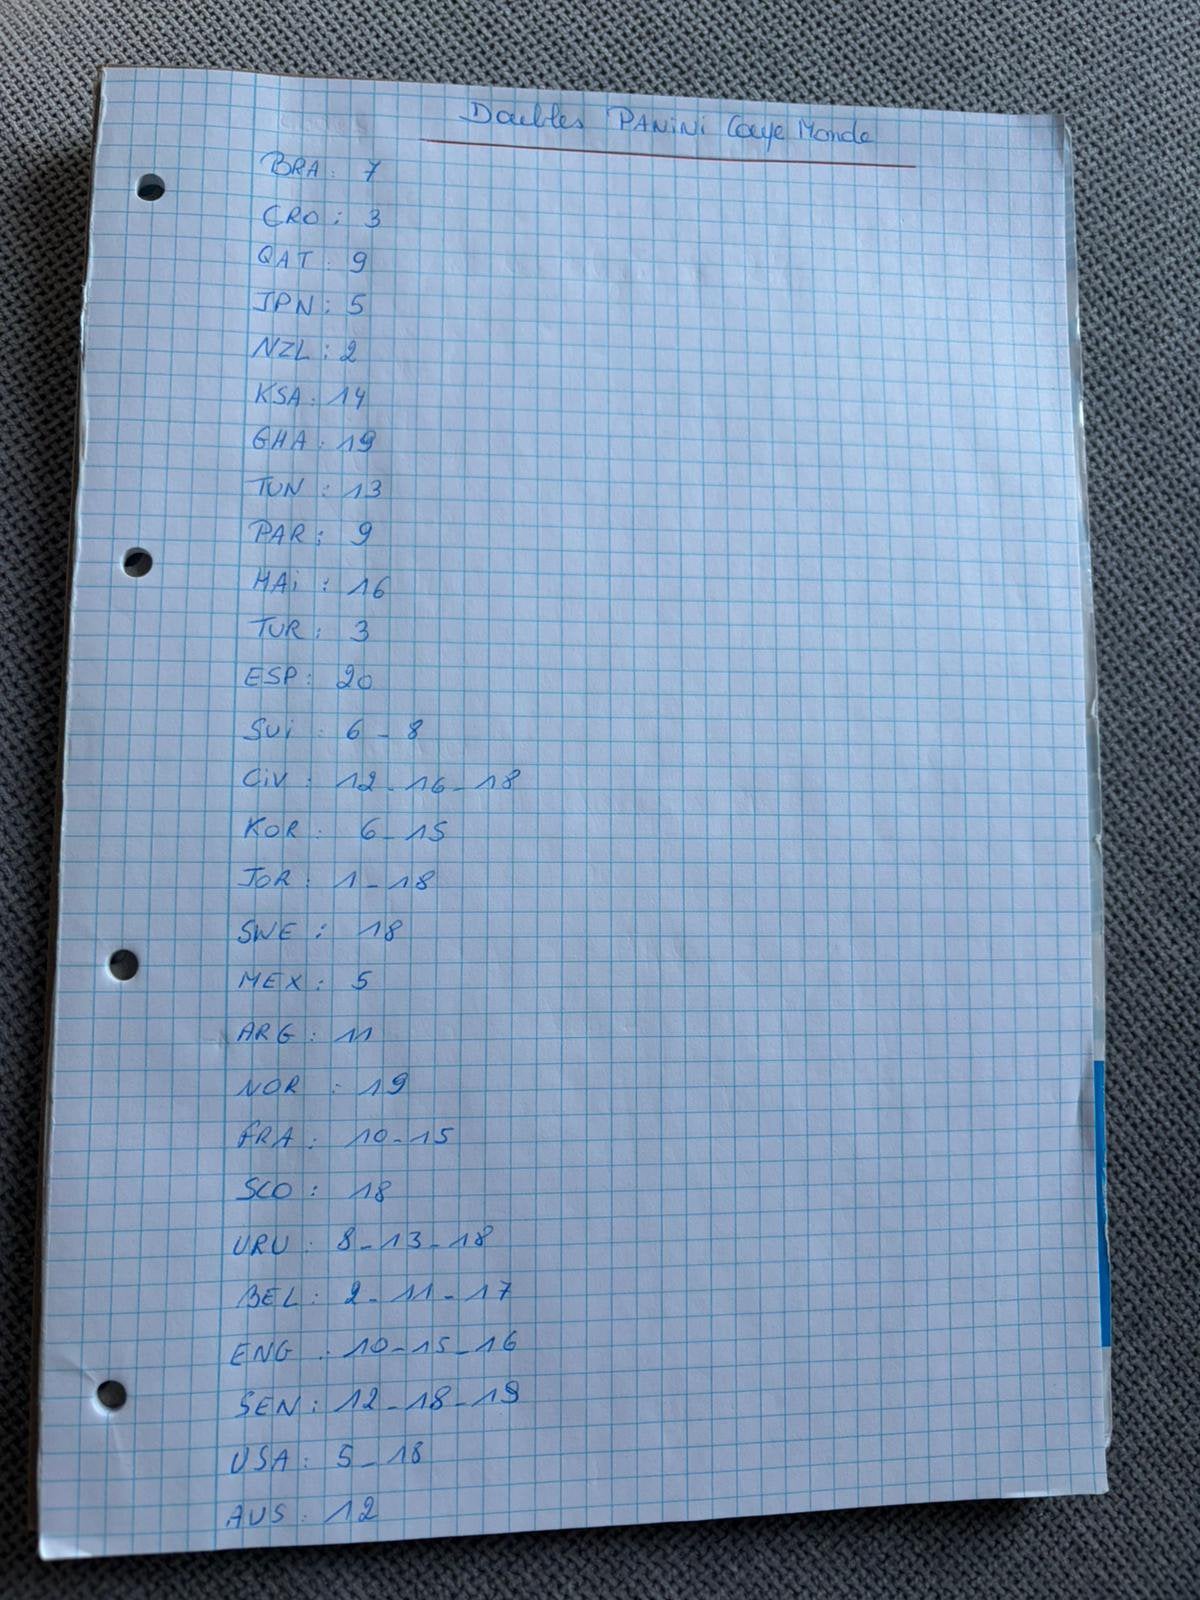 Doubles PANiNi Coupe Monde
BRA : 7
CRO : 3
QAT : 9
JPN : 5
NZL : 2
KSA : 14
GHA : 19
TUN : 13
PAR : 9
HAi : 16
TUR : 3
ESP : 20
SUi : 6 - 8
CiV : 12 - 16 - 18
KOR : 6 - 15
JOR : 1 - 18
SWE : 18
MEX : 5
ARG : 11
NOR : 19
FRA : 10 - 15
SCO : 18
URU : 8 - 13 - 18
BEL : 2 - 11 - 17
ENG : 10 - 15 - 16
SEN : 12 - 18 - 19
USA : 5 - 18
AUS : 12